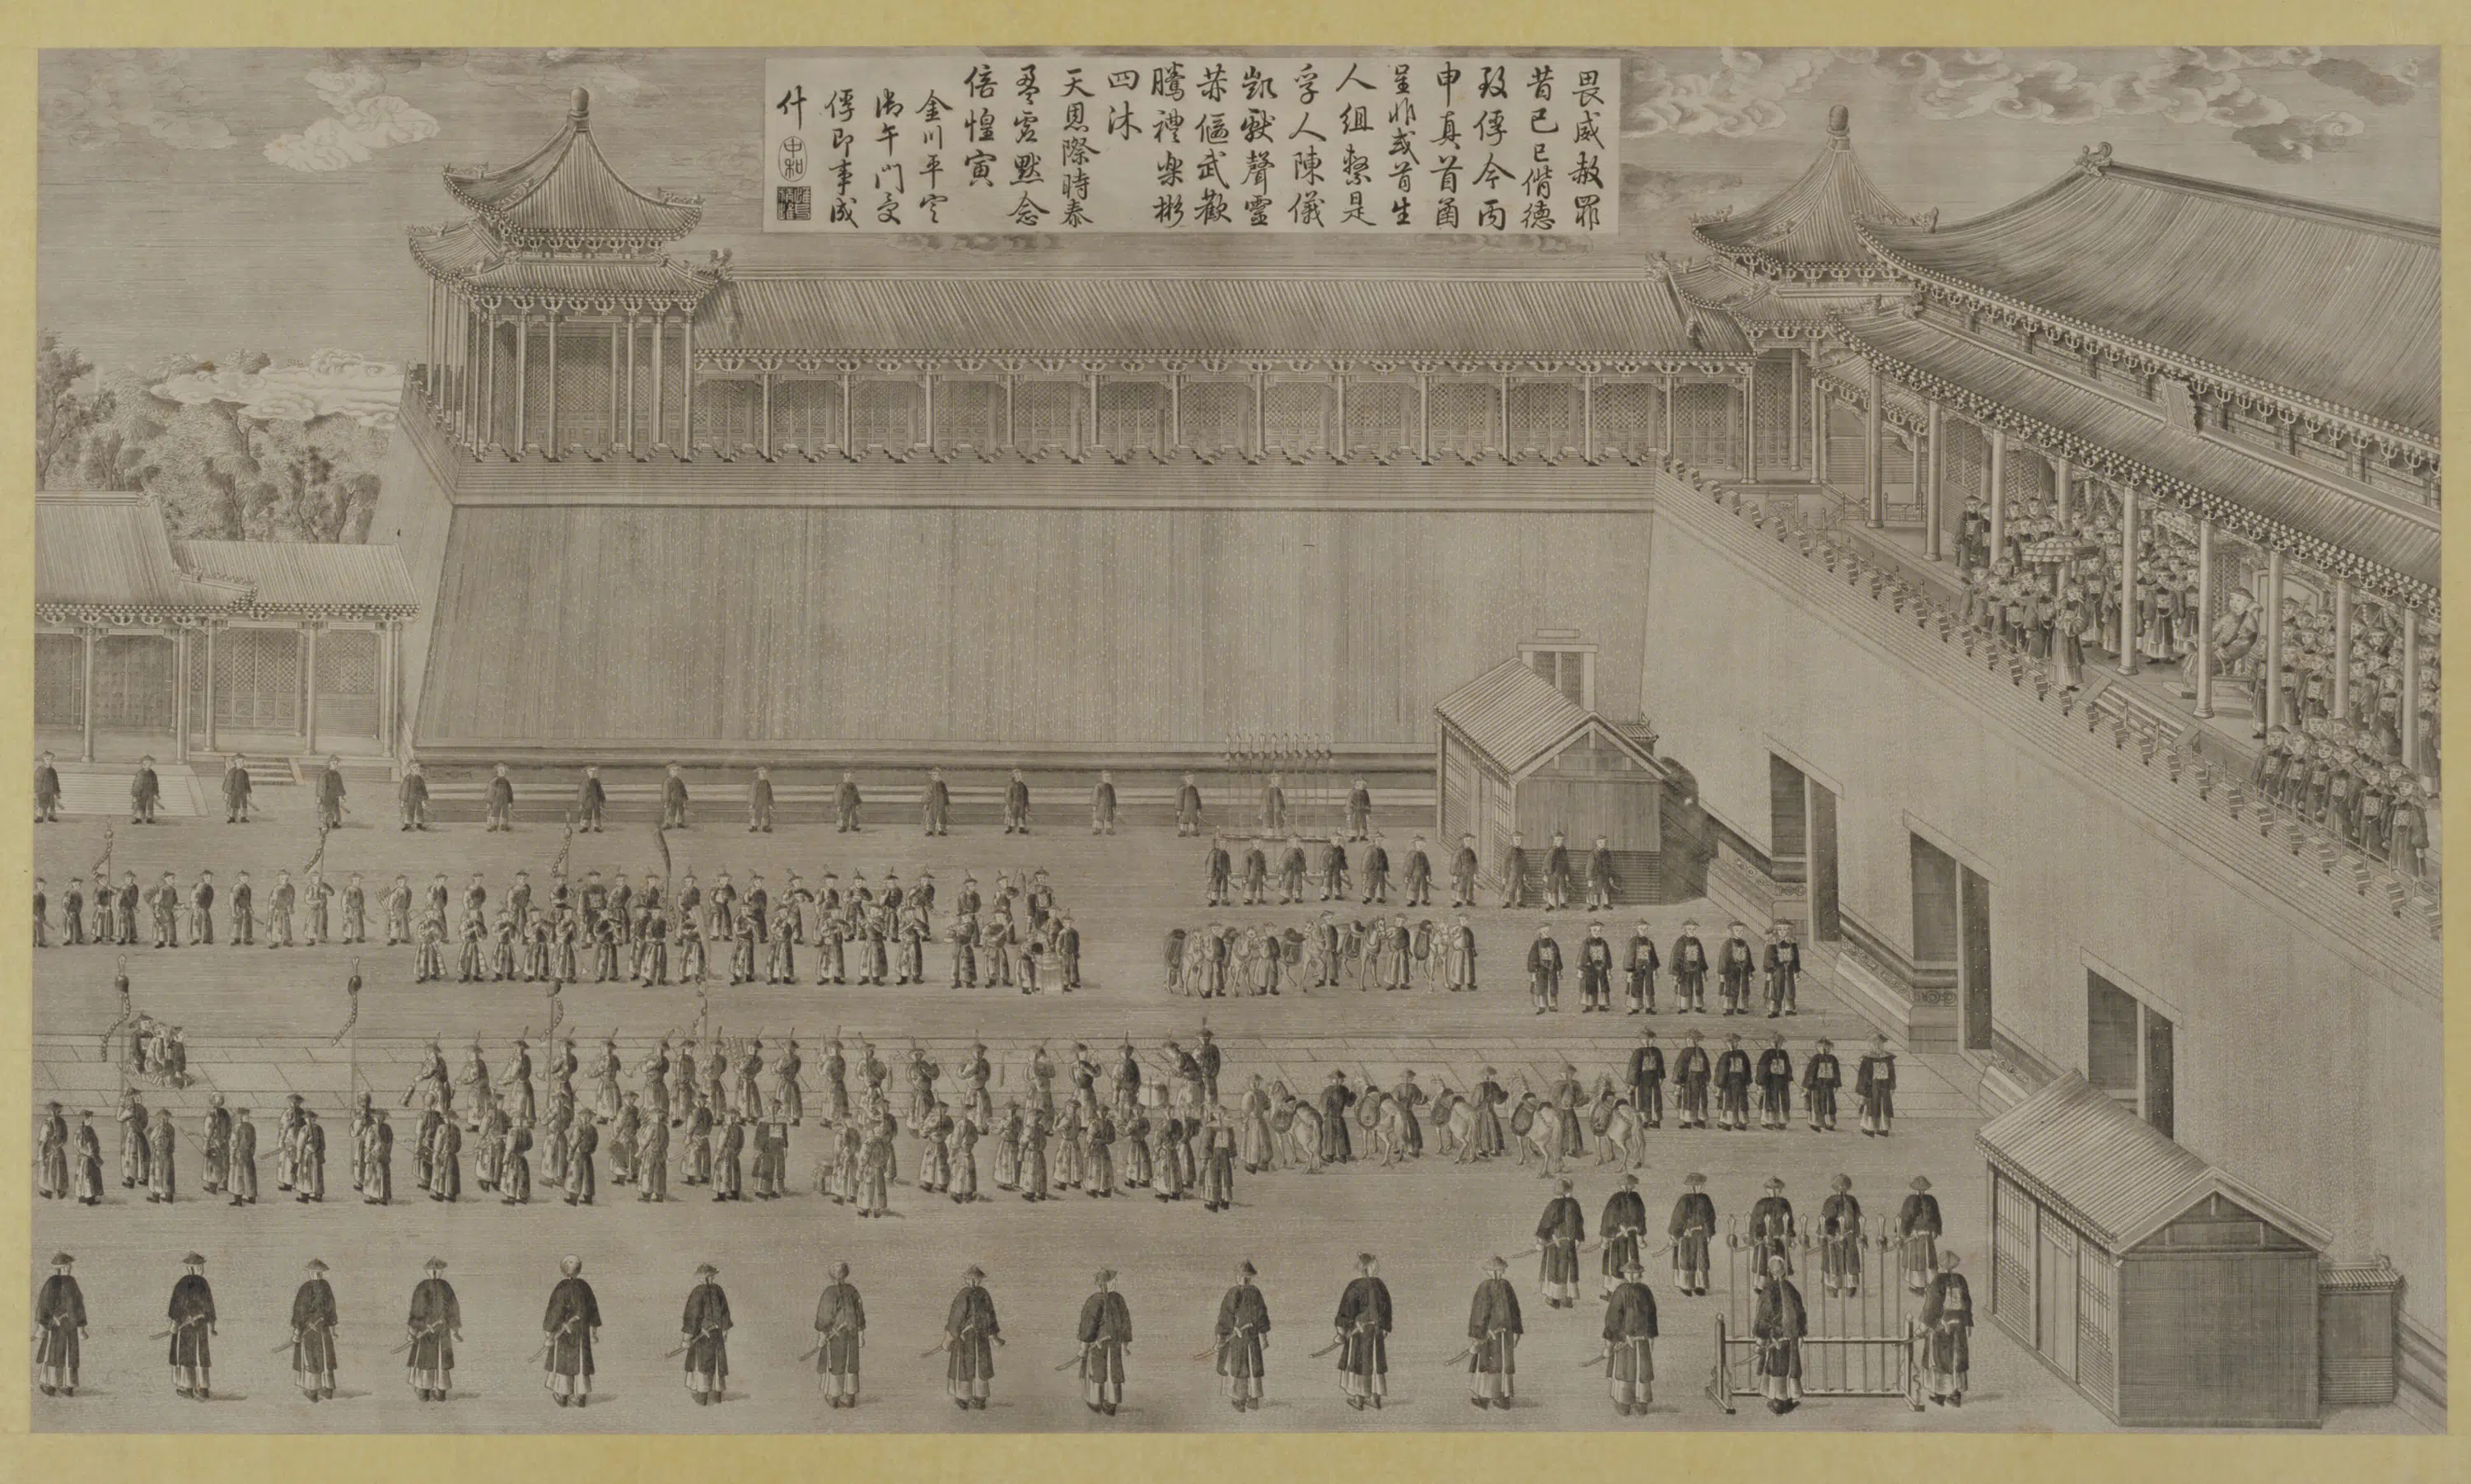 畏威赦罪
昔己巳偝德
致俘今丙
申真首酋
呈非或首生
人組繫是
孚人陳儀
凱獻聲靈
赫偃武歡
騰禮樂彬
四沐
天恩際時泰
益虔默念
倍惶寅
金川平定
御午門受
俘即事成
什
中和